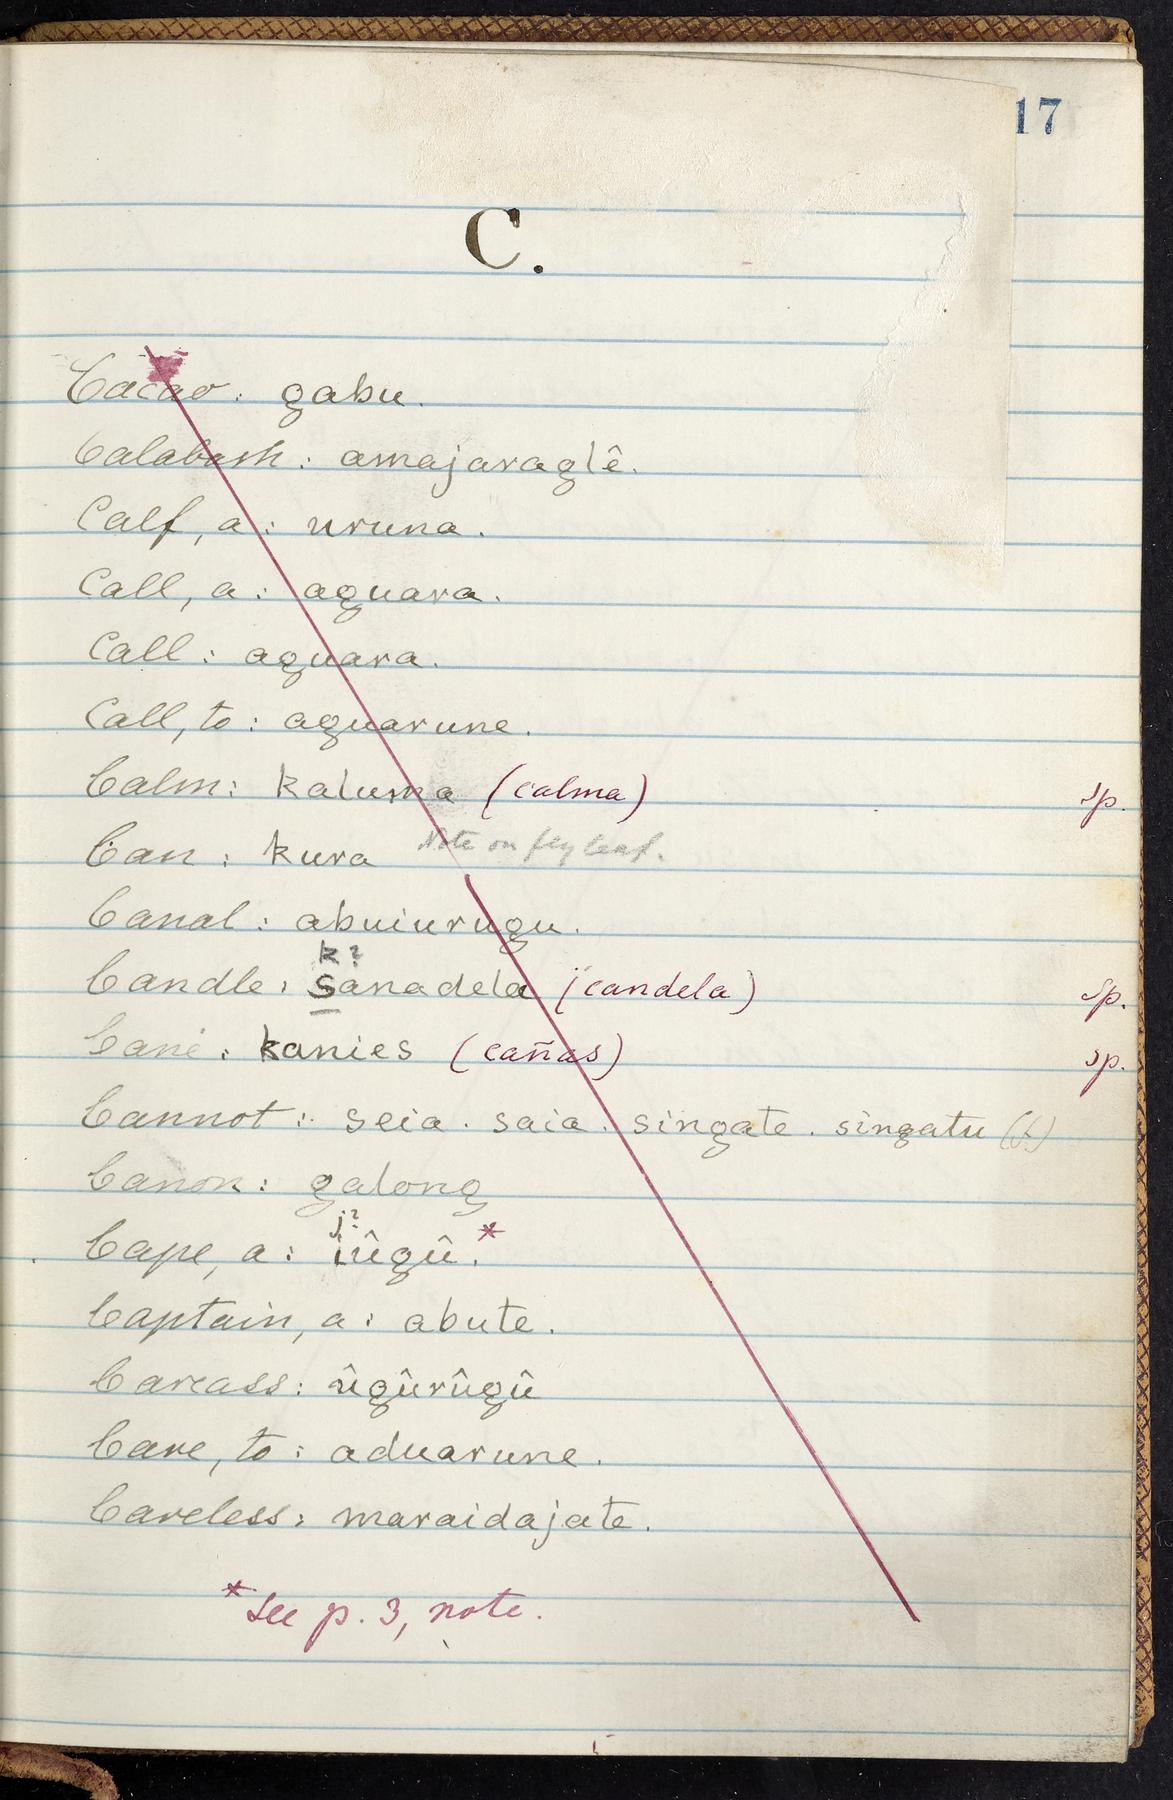 17
C.
Cacao: gabu.
Calabash: amajaraglê.
Calf, a: uruna.
Call, a: aguara.
Call: aguara.
Call, to: aguarune.
Calm: kaluma (calma) sp.
Can: kura Note on fly leaf.
Canal: abuiurugu.
k?
Candle: Sanadela (candela) sp.
Cane: kanies (cañas) sp.
Cannot: seia. saia. singate. singatu
Canon: galong
j?
Cape, a: iûgû.*
Captain, a: abute.
Carcass: ûgûrûgû
Care, to: aduarune.
Careless: maraidajate.
* See p. 3, note.